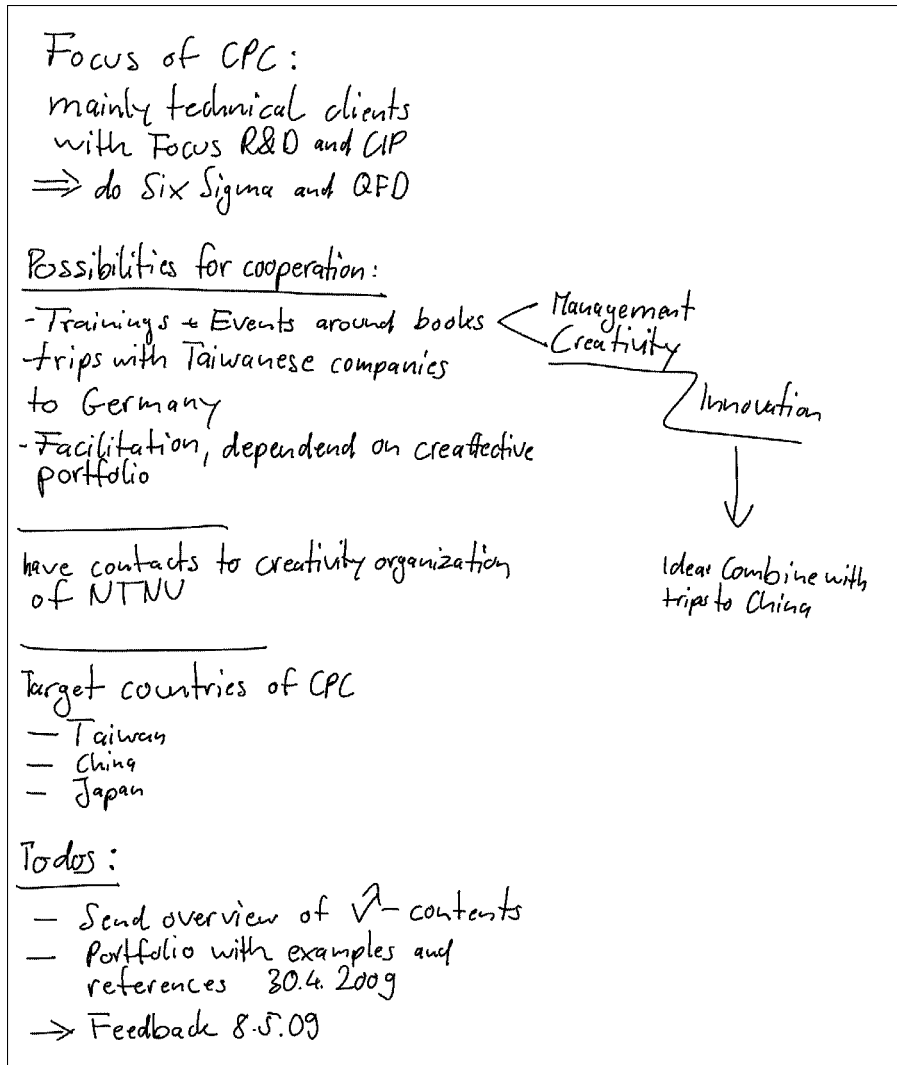 Focus of CPC:
mainly technical clients
with Focus R&D and CIP
⇒ do Six Sigma and QFD
Possibilities for cooperation:
- Trainings + Events around books < Management
Creativity
Innovation
- trips with Taiwanese companies
to Germany
- Facilitation, dependend on creaffective
portfolio
have contacts to creativity organization
of NTNU
Idea: Combine with
trips to China
Target countries of CPC
- Taiwan
- China
- Japan
Todos:
- Send overview of - contents
- Portfolio with examples and
references 30.4.2009
→ Feedback 8.5.09